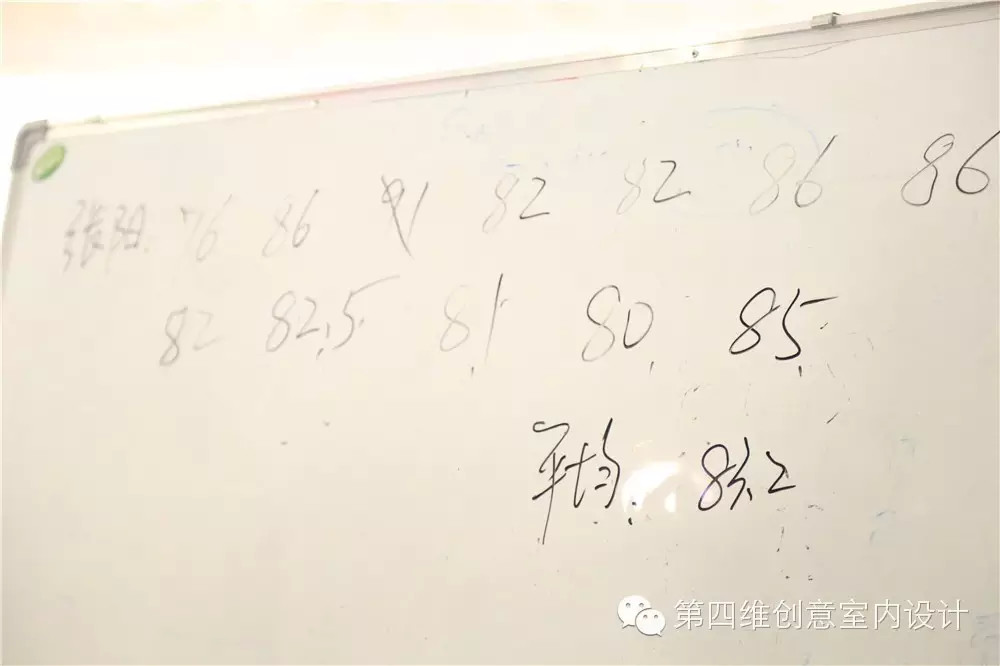 张阳. 76 86 91 82 82 86 86
82 82.5 81 80 85
平均: 83.2
第四维创意室内设计